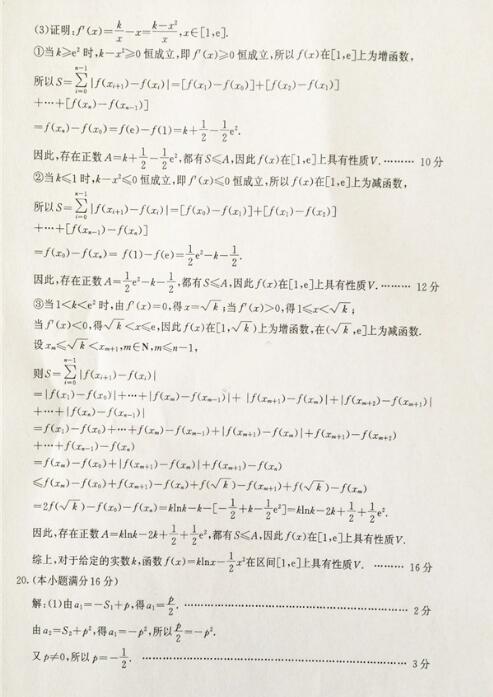 (3)证明:f′(x)=k/x-x=(k-x²)/x,x∈[1,e].
①当k≥e²时,k-x²≥0恒成立,即f′(x)≥0恒成立,所以f(x)在[1,e]上为增函数,
所以S=∑_{i=0}^{n-1}|f(x_{i+1})-f(x_i)|=[f(x₁)-f(x₀)]+[f(x₂)-f(x₁)]
+…+[f(x_n)-f(x_{n-1})]
=f(x_n)-f(x₀)=f(e)-f(1)=k+1/2-1/2e².
因此,存在正数A=k+1/2-1/2e²,都有S≤A,因此f(x)在[1,e]上具有性质V. ……… 10分
②当k≤1时,k-x²≤0恒成立,即f′(x)≤0恒成立,所以f(x)在[1,e]上为减函数,
所以S=∑_{i=0}^{n-1}|f(x_{i+1})-f(x_i)|=[f(x₀)-f(x₁)]+[f(x₁)-f(x₂)]
+…+[f(x_{n-1})-f(x_n)]
=f(x₀)-f(x_n)= f(1)-f(e)=1/2e²-k-1/2.
因此,存在正数A=1/2e²-k-1/2,都有S≤A,因此f(x)在[1,e]上具有性质V. ……… 12分
③当1<k<e²时,由f′(x)=0,得x=√k;当f′(x)>0,得1≤x<√k;
当f′(x)<0,得√k<x≤e,因此f(x)在[1,√k)上为增函数,在(√k,e]上为减函数.
设x_m≤√k<x_{m+1},m∈N,m≤n-1,
则S=∑_{i=0}^{n-1}|f(x_{i+1})-f(x_i)|
=|f(x₁)-f(x₀)|+…+|f(x_m)-f(x_{m-1})|+ |f(x_{m+1})-f(x_m)|+|f(x_{m+2})-f(x_{m+1})|
+…+|f(x_n)-f(x_{n-1})|
=f(x₁)-f(x₀)+…+f(x_m)-f(x_{m-1})+|f(x_{m+1})-f(x_m)|+f(x_{m+1})-f(x_{m+2})
+…+f(x_{n-1})-f(x_n)
=f(x_m)-f(x₀)+|f(x_{m+1})-f(x_m)|+f(x_{m+1})-f(x_n)
≤f(x_m)-f(x₀)+f(x_{m+1})-f(x_n)+f(√k)-f(x_{m+1})+f(√k)-f(x_m)
=2f(√k)-f(x₀)-f(x_n)=klnk-k-[-1/2+k-1/2e²]=klnk-2k+1/2+1/2e².
因此,存在正数A=klnk-2k+1/2+1/2e²,都有S≤A,因此f(x)在[1,e]上具有性质V.
综上,对于给定的实数k,函数f(x)=klnx-1/2x²在区间[1,e]上具有性质V. ……… 16分
20.(本小题满分16分)
解:(1)由a₁=-S₁+p,得a₁=p/2. ……… 2分
由a₂=S₂+p²,得a₁=-p²,所以p/2=-p².
又p≠0,所以p=-1/2. ……… 3分